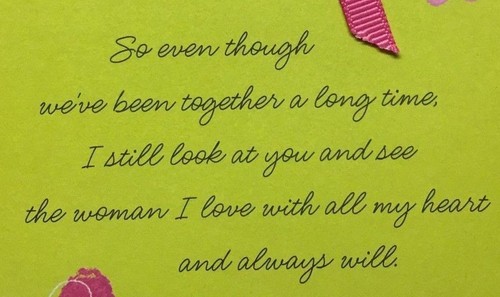 So even though
we've been together a long time,
I still look at you and see
the woman I love with all my heart
and always will.